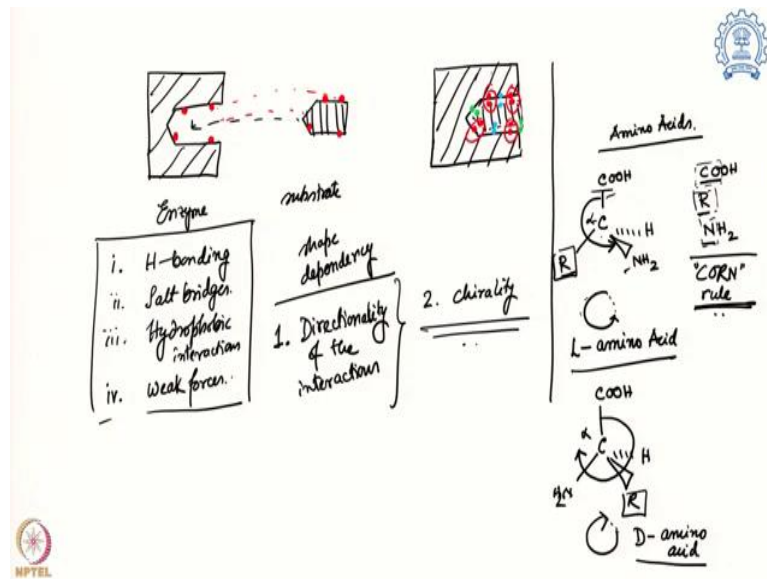 Enzyme
substrate
i. H-bonding
ii. Salt bridges.
iii. Hydrophobic
interactions
iv. weak forces..
shape
dependency
1. Directionality
of the
interactions
2. chirality
Amino Acids.
COOH
α C H
R NH2
L-amino Acid
COOH
R
NH2
"CORN"
rule
COOH
α C H
H2N R
D-amino
acid
NPTEL